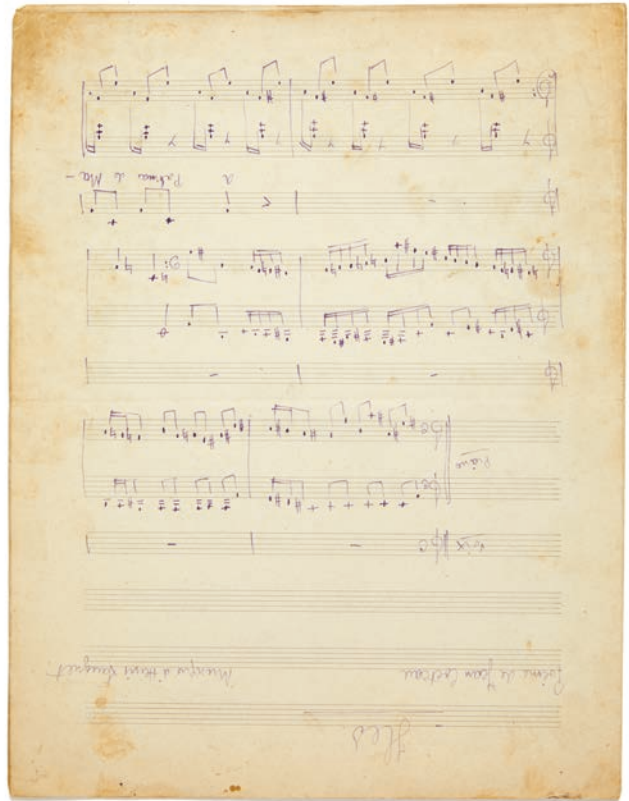 Iles
Poème de Jean Cocteau Musique d'Henri Sauguet
voix
Piano
A Palma de Ma-